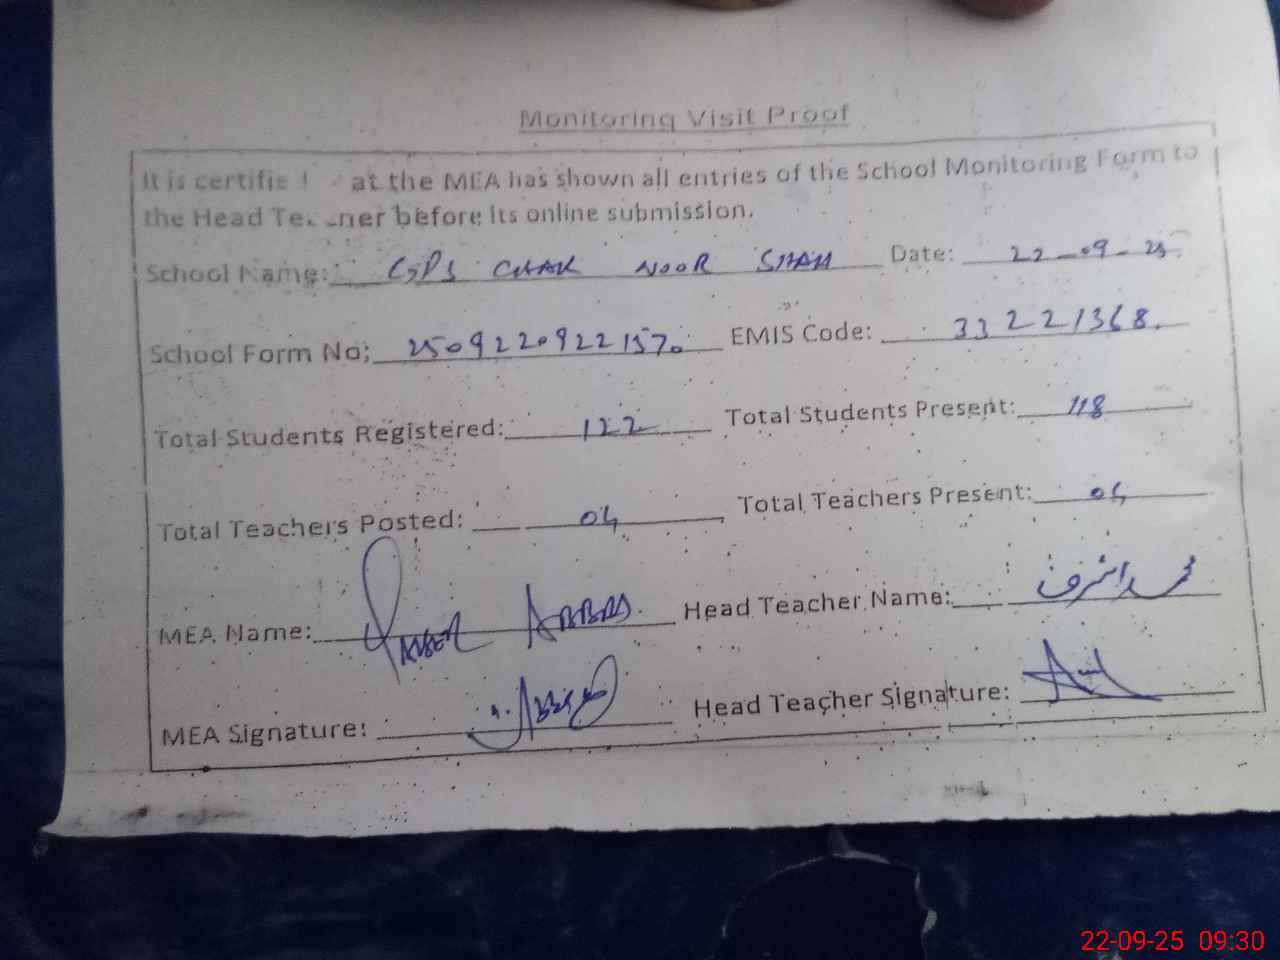 Monitoring Visit Proof
It is certifie at the MEA has shown all entries of the School Monitoring Form to
the Head Te ner before its online submission.
School Name: GPS CHAK NOOR SHAH Date: 22-09-25
School Form No: 2509220922157 EMIS Code: 33221368.
Total Students Registered: 122 Total Students Present: 118
Total Teachers Posted: 04 Total Teachers Present: 04
MEA Name: ABBAS. Head Teacher Name: محمد اشرف
MEA Signature: Head Teacher Signature:
22-09-25 09:30